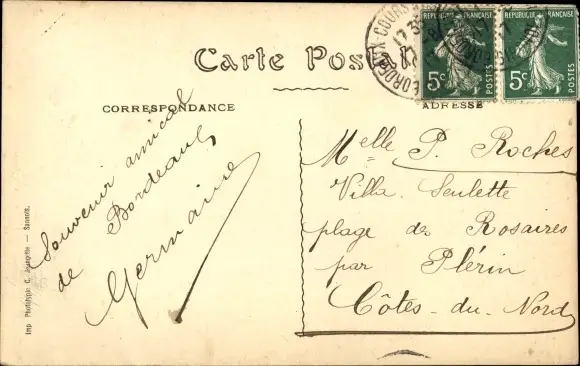 Carte Postale
CORRESPONDANCE
ADRESSE
REPUBLIQUE FRANÇAISE
5c
POSTES
REPUBLIQUE FRANÇAISE
5c
POSTES
BORDEAUX-COURS
17 35
Souvenir amical
de Bordeaux
Germaine
Melle P. Roches
Villa Seulette
plage des Rosaires
par Plérin
Côtes-du-Nord
Imp Phototypie C. — Sannois.